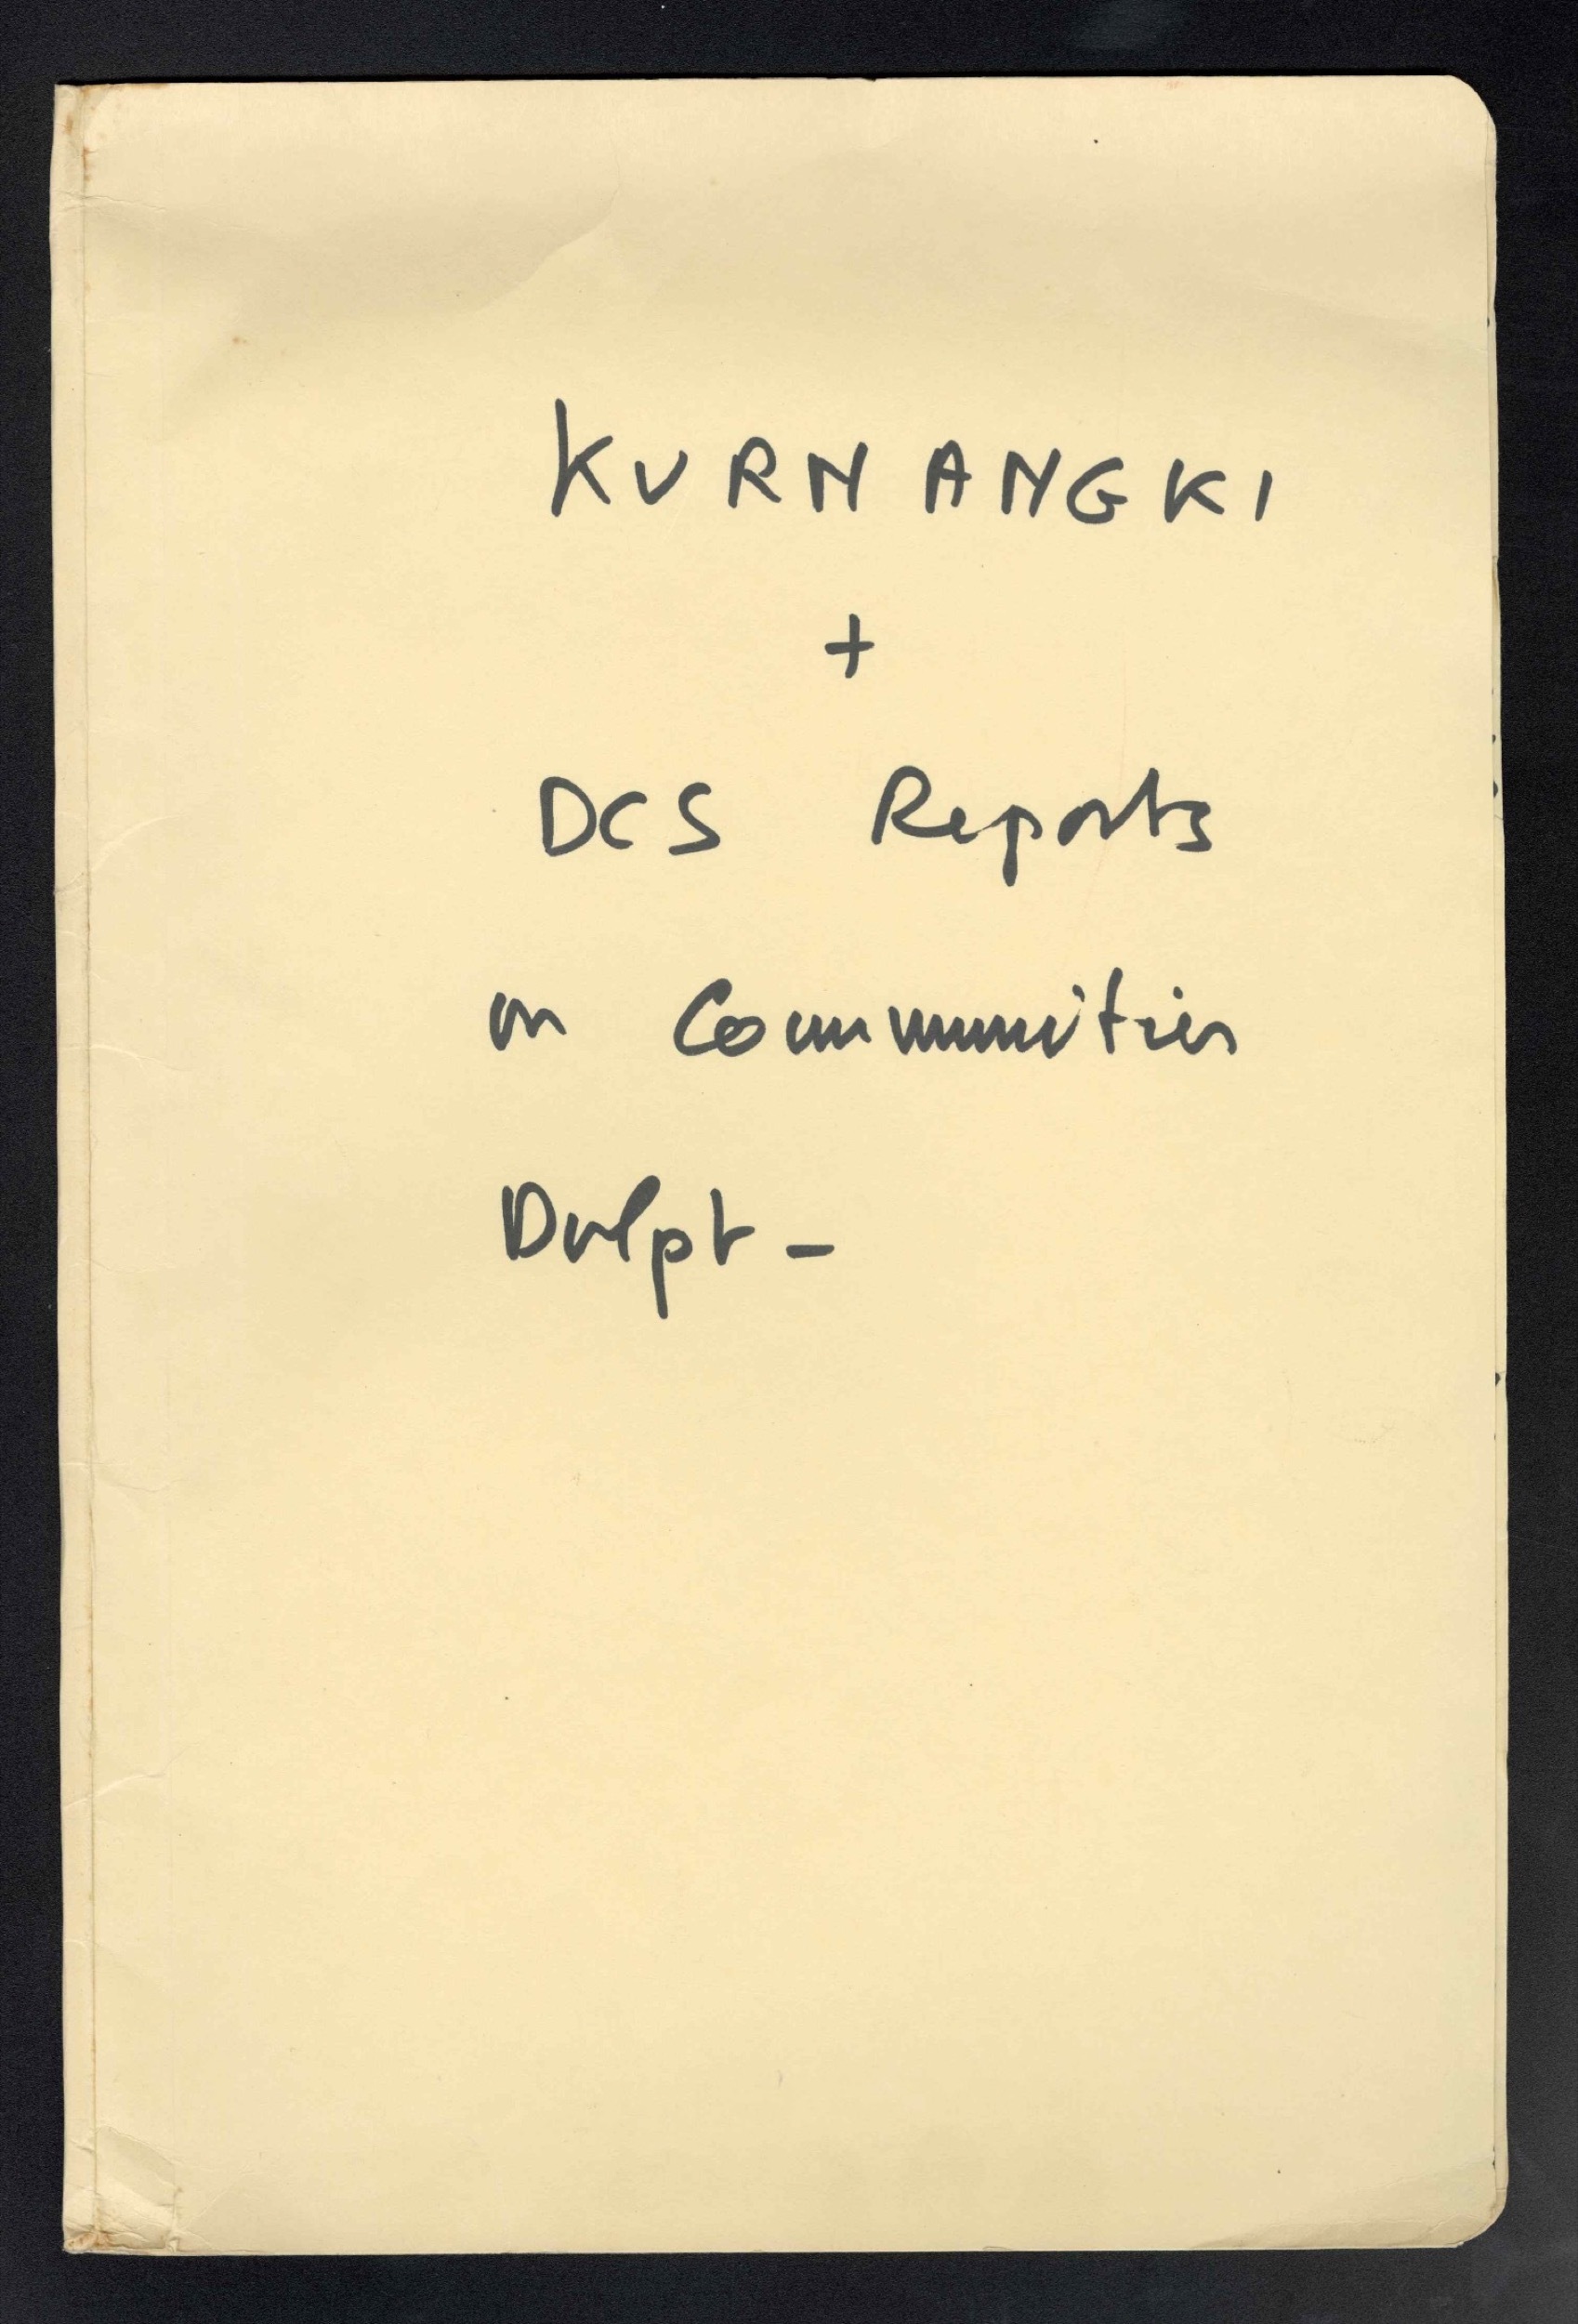 KURNANGKI
+
DCS Reports
on Communities
Dvlpt -